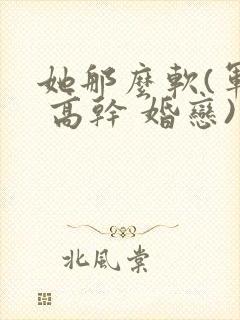 她那麼軟(軍
高幹 婚戀)
北風棠